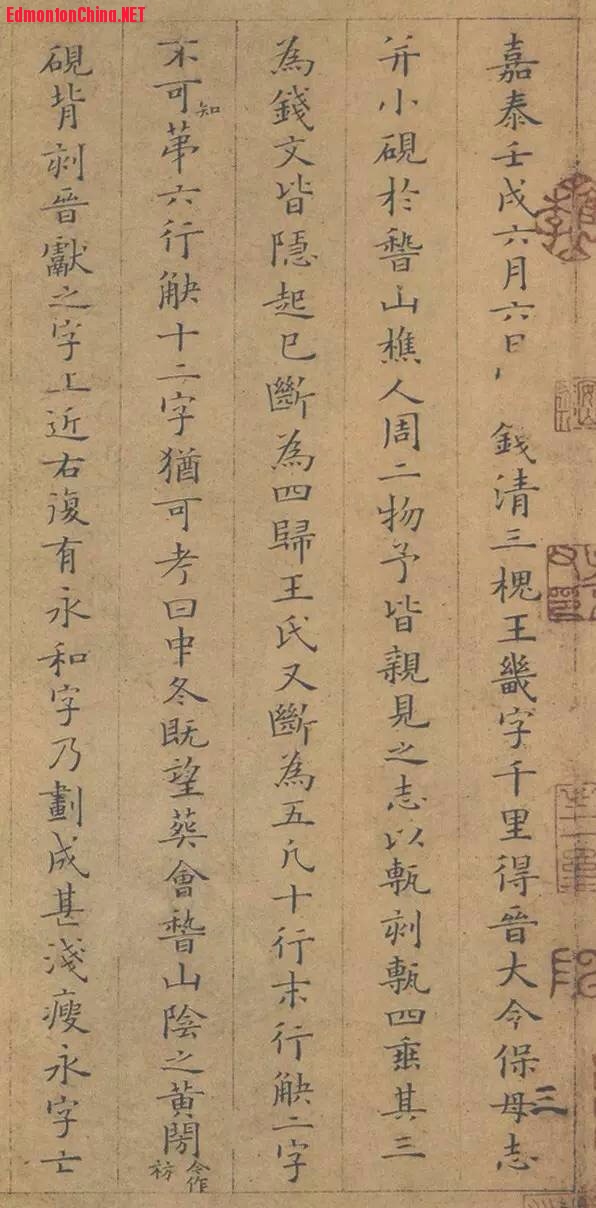 EdmontonChina.NET
嘉泰壬戌六月六日錢清三槐王畿字千里得晉大令保母志
并小硯於稽山樵人周二物予皆親見之志以甎刻甎四垂其三
為錢文皆隱起已斷為四歸王氏又斷為五凡十行末行缺二字
不可知第六行缺十二字猶可考曰中冬既望葬會稽山陰之黃閍今作祊
硯背刻晉獻之字上近右復有永和字乃劃成甚淺瘦永字亡
三